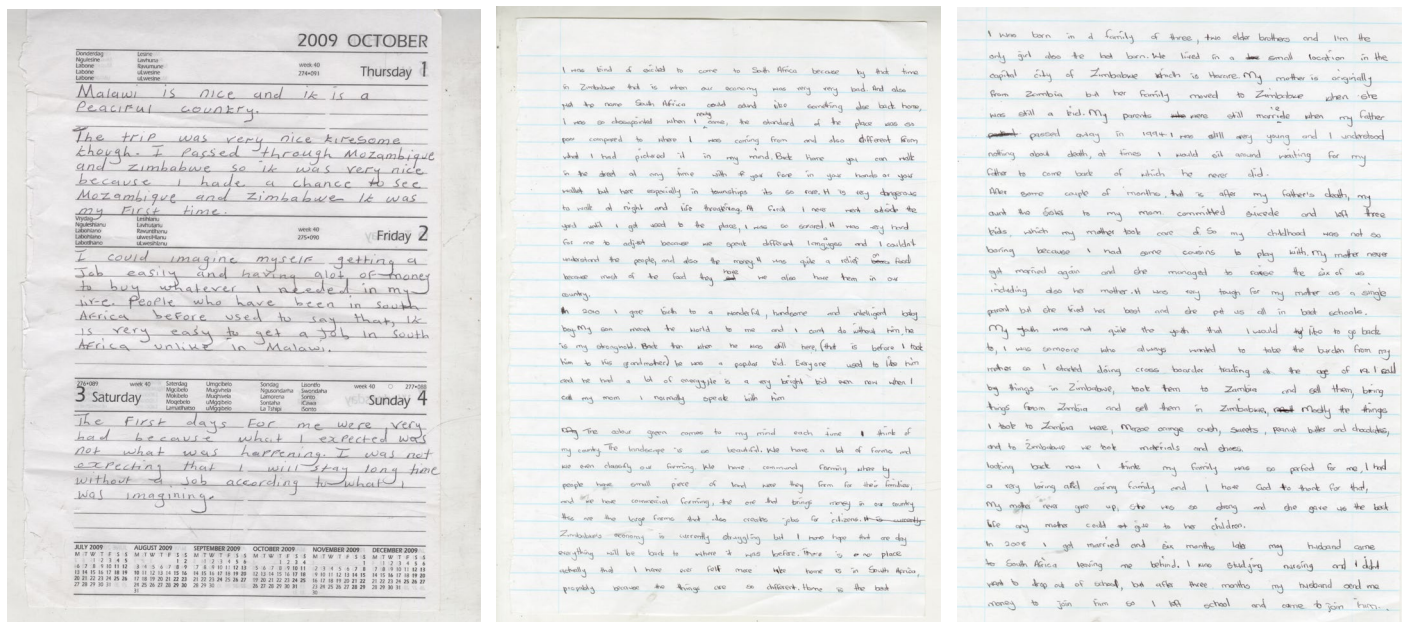 2009 OCTOBER
Donderdag
Ngulesine
Labone
Labone
Labone
Lesine
Lavhuna
Ravumune
uLwesine
uLwesine
week 40
274•091
Thursday 1
Malawi is nice and ik is a
Peaciful country.
The trip was very nice kiresome
though. I passed through Mozambique
and Zimbabwe so ik was very nice
because I hade a chance to see
Mozambique and Zimbabwe Ik was
my First time.
Vrydag
week 40
275•090
Friday 2
I could imagine myself getting a
Job easily and having alot of money
to buy whatever I needed in my
life. People who have been in south
Africa before used to say that, Ik
is very easy to get a Job in South
Africa unlike in Malawi.
276•089
week 40
3 Saturday
Saterdag
Mgcibelo
Mokibelo
Moqebelo
Lamatlhatso
Umgcibelo
Mugivhela
Mugqivela
uMgqibelo
uMgqibelo
Sondag
Ngusondarha
Lamorena
Sontaha
La Tshipi
Lisontfo
Swondaha
Sonto
iCawa
iSonto
week 40
277•088
Sunday 4
The First days For me were very
bad because what I expected was
not what was happening. I was not
expecting that I will stay long time
without a Job according to what I
was imagining.
JULY 2009 AUGUST 2009 SEPTEMBER 2009 OCTOBER 2009 NOVEMBER 2009 DECEMBER 2009
I was kind of excited to come to South Africa because by that time
in Zimbabwe that is when our economy was very very bad. And also
just the name South Africa could sound like something else back home,
I was so dissapointed when I newly came, the standard of the place was so
poor compared to where I was coming from and also different from
what I had pictured it in my mind. Back home you can walk
in the street at any time with your fone in your hands or your
wallet but here especially in townships its so rare. It is very dangerous
to walk at night and life threatening. At first I never went outside the
yard until I got used to the place, I was so scared. It was very hard
for me to adjust because we speak different languages and I couldn't
understand the people, and also the money. It was quite a relief on food
because most of the food they have we also have them in our
country.
In 2010 I gave birth to a wonderful, handsome and inteligent baby
boy. My son meant the world to me and I cant do without him he
is my stronghold. Back then when he was still here, (that is before I took
him to his grandmother) he was a popular kid. Everyone used to like him
and he had a lot of energy. He is a very bright kid even now when I
call my mom I normally speak with him
The colour green comes to my mind each time I think of
my country. The landscape is so beautiful. We have a lot of farms and
we even classify our farming. We have command farming where by
people have small piece of land were they farm for their families,
and we have commercial farming, the one that brings money in our country
this are the large farms that also creates jobs for citizens. It is currently
Zimbabwe's economy is currently struggling but I have hope that one day
everything will be back to where it was before. There is no place
actually that I have ever felt more like home is in South Africa,
propably because the things are so different. Home is the best
I was born in a family of three, two elder brothers and I'm the
only girl also the last born. We lived in a small location in the
capital city of Zimbabwe which is Harare. My mother is originally
from Zambia but her family moved to Zimbabwe when she
was still a kid. My parents were still married when my father
passed away in 1994. I was still very young and I understood
nothing about death, at times I would sit around waiting for my
father to come back of which he never did.
After some couple of months, that is after my father's death, my
aunt the sister to my mom committed suicede and left three
kids, which my mother took care of. So my childhood was not so
boring because I had some cousins to play with. My mother never
got married again and she managed to raise the six of us
including also her mother. It was very tough for my mother as a single
parent but she tried her best and she put us all in best schools.
My youth was not quite the youth that I would like to go back
to, I was someone who always wanted to take the burden from my
mother so I started doing cross boarder trading at the age of 12. I could
buy things in Zimbabwe, took them to Zambia and sell them, bring
things from Zambia and sell them in Zimbabwe, Mostly the things
I took to Zambia were, Mazoe orange crush, sweets, peanut butter and chocolates,
and to Zimbabwe we took materials and shoes.
Looking back now I think my family was so perfect for me, I had
a very loving and caring family and I have God to thank for that,
My mother never gave up, she was so strong and she gave us the best
life any mother could give to her children.
In 2008 I got married and six months later my husband came
to South Africa leaving me behind. I was studying nursing and I didnt
want to drop out of school, but after three months my husband send me
money to join him so I left school and came to join him.